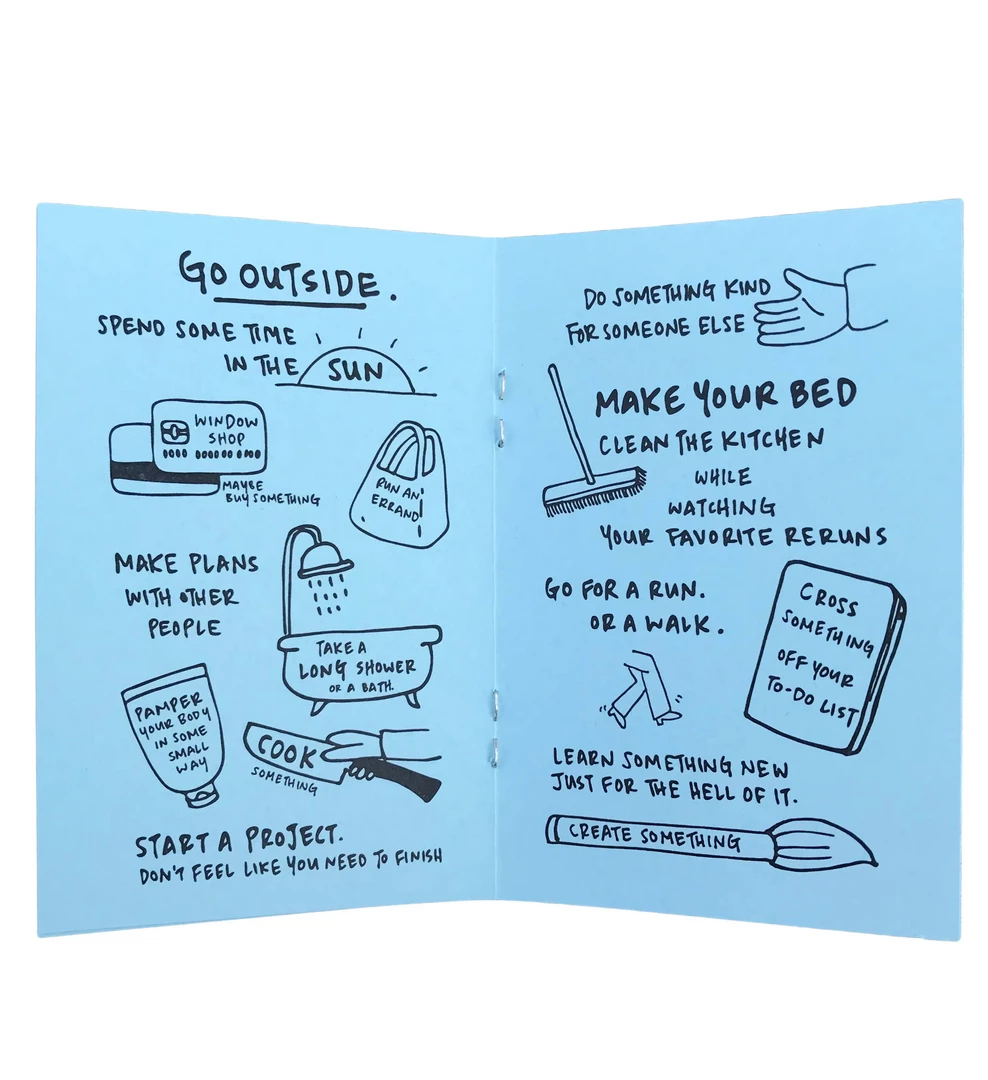 GO OUTSIDE.
SPEND SOME TIME
IN THE SUN
WINDOW
SHOP
MAYBE
BUY SOMETHING
RUN AN
ERRAND
MAKE PLANS
WITH OTHER
PEOPLE
TAKE A
LONG SHOWER
OR A BATH.
PAMPER
YOUR BODY
IN SOME
SMALL
WAY
COOK
SOMETHING
START A PROJECT.
DON'T FEEL LIKE YOU NEED TO FINISH
DO SOMETHING KIND
FOR SOMEONE ELSE
MAKE YOUR BED
CLEAN THE KITCHEN
WHILE
WATCHING
YOUR FAVORITE RERUNS
GO FOR A RUN.
OR A WALK.
CROSS
SOMETHING
OFF YOUR
TO-DO LIST
LEARN SOMETHING NEW
JUST FOR THE HELL OF IT.
CREATE SOMETHING